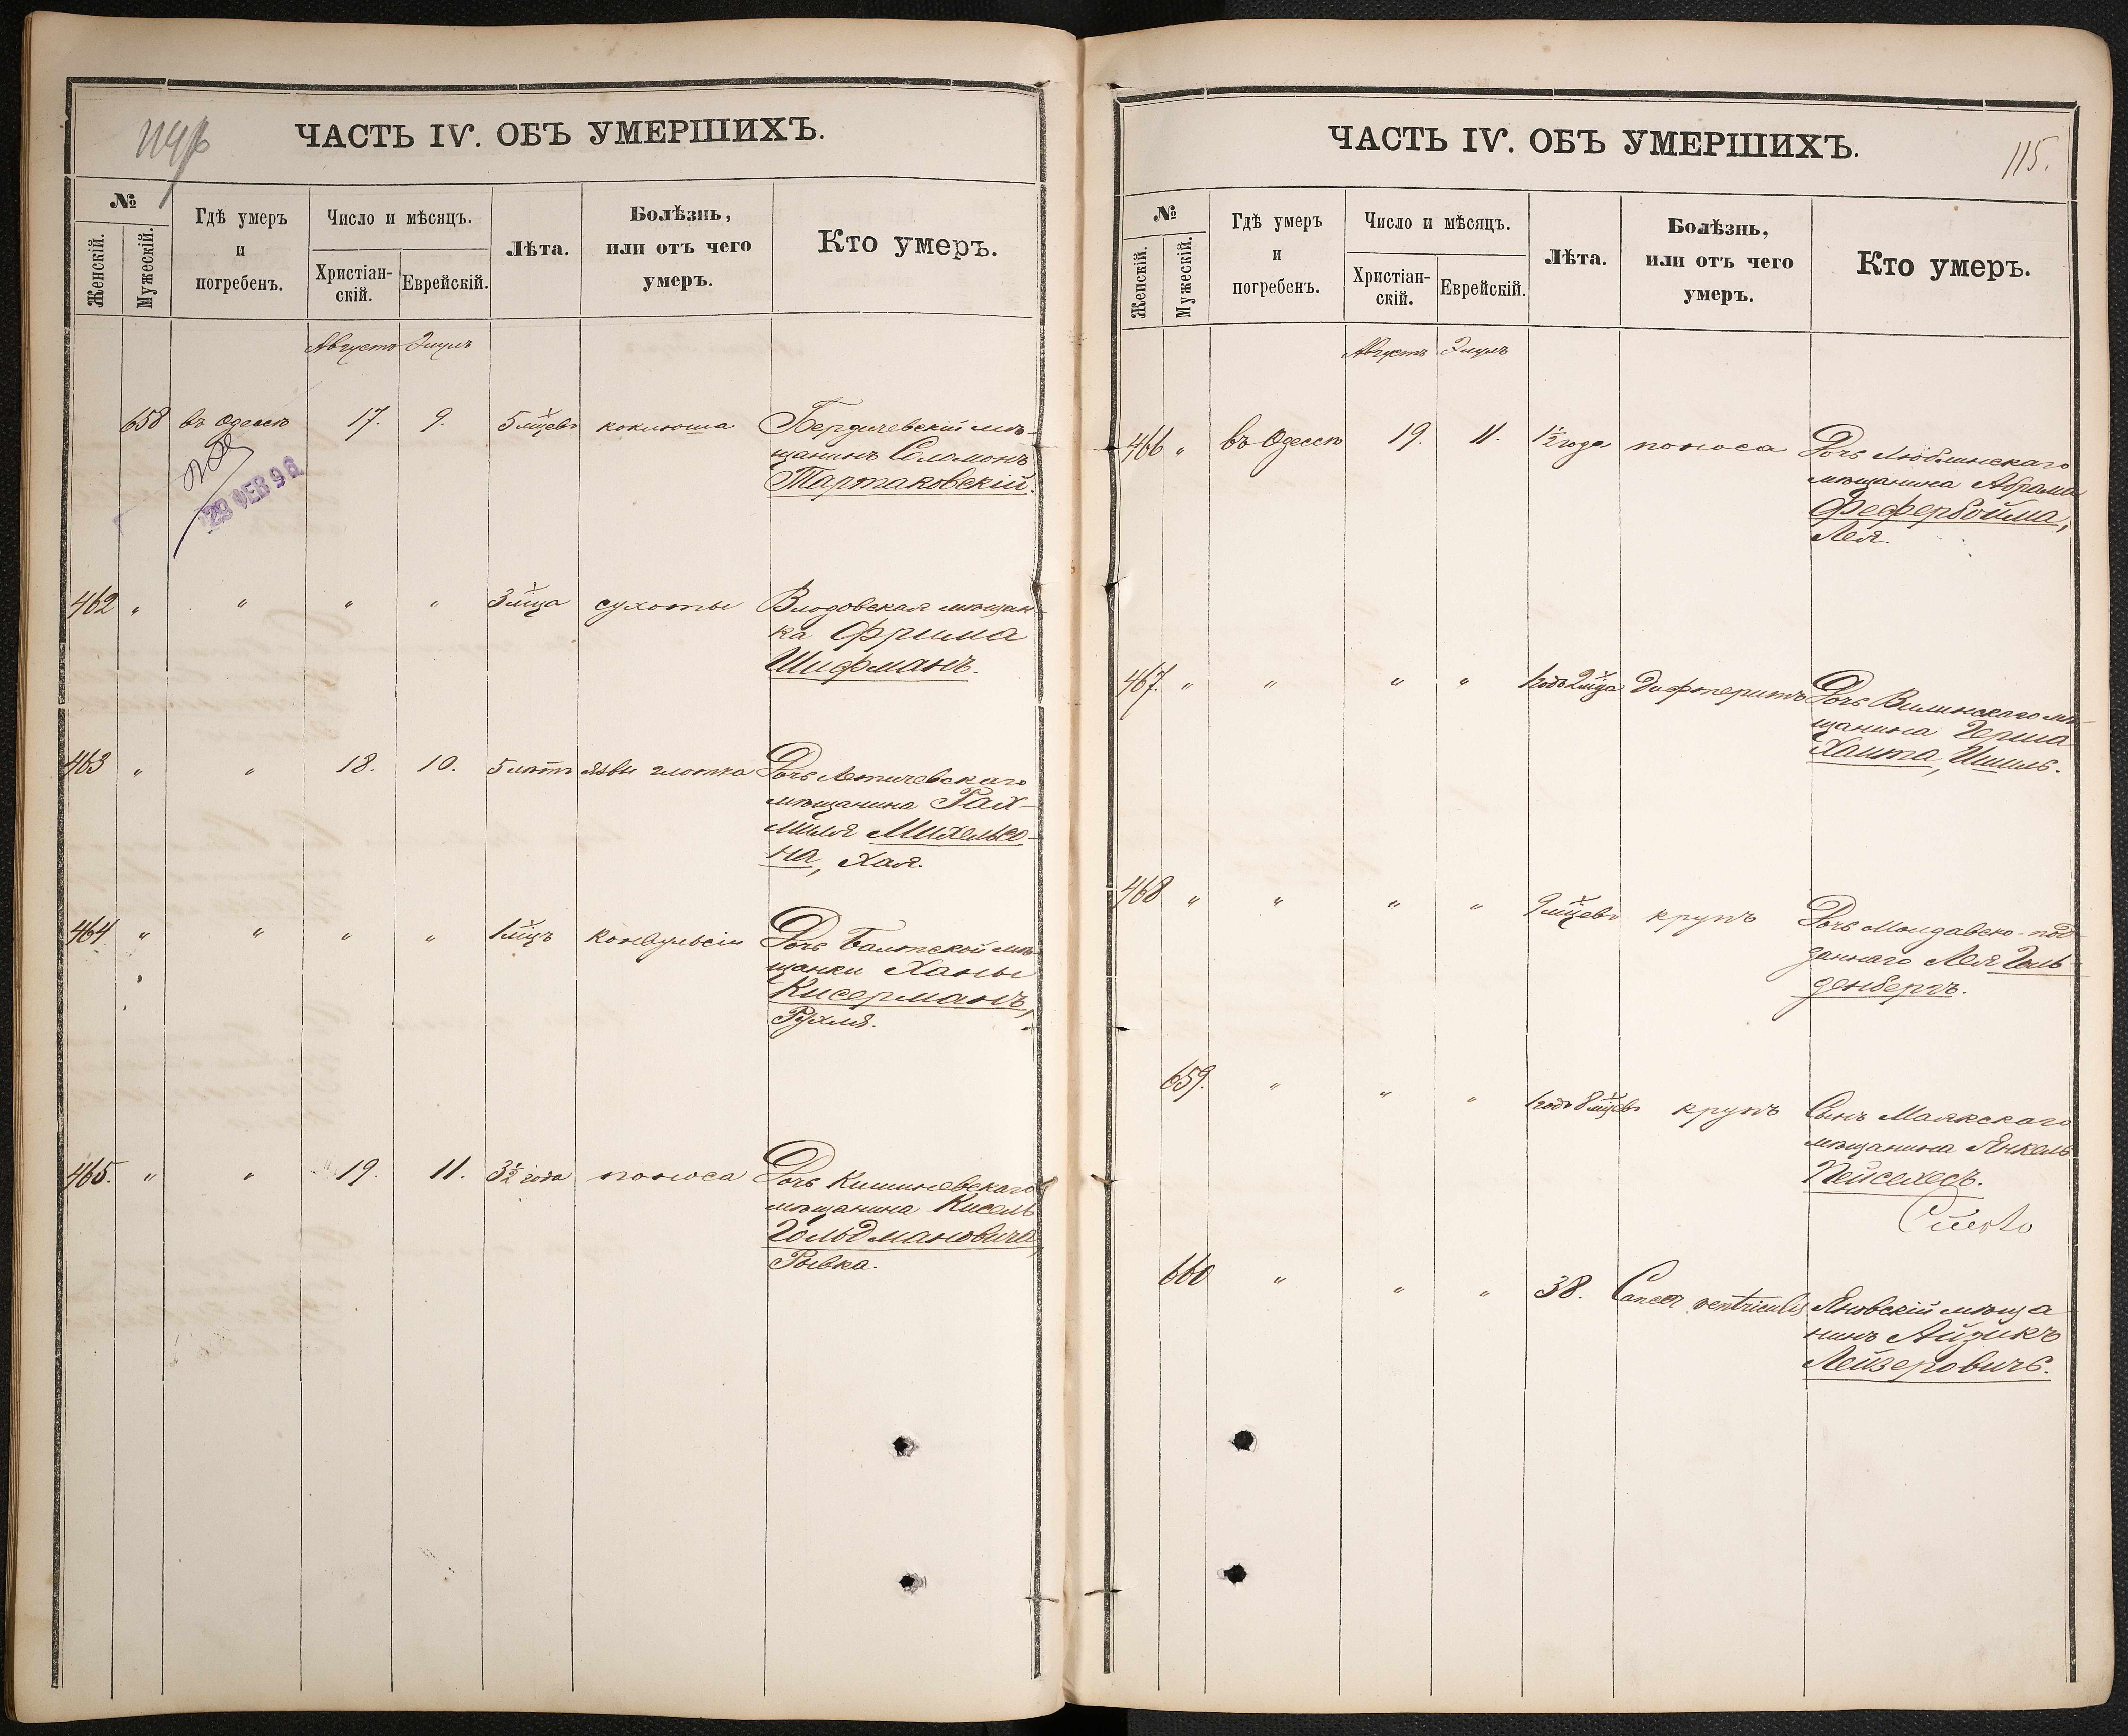 ЧАСТЬ IV. ОБЪ УМЕРШИХЪ.
№
Женскій.
Мужескій.
Гдѣ умеръ
и
погребенъ.
Число и мѣсяцъ.
Христіан-
скій.
Еврейскій.
Лѣта.
Болѣзнь,
или отъ чего
умеръ.
Кто умеръ.
Августъ Элулъ
658 въ Одессѣ 17. 9. 5 мцевъ коклюша Бердичевскій мѣ-
щанинъ Соломонъ
Тартаковскій.
29 ФЕВ 96
462 " " " " 3 мца сухоты Влодовская мѣщан
ка Фрима
Шифманъ.
463 " " 18. 10. 5 лѣтъ язвы глотка Дочь Летичевскаго
мѣщанина Рах-
миля Михельсо-
на, Хая.
464 " " " " 1 мцъ конвульсіи Дочь Балтской мѣ-
щанки Ханы
Кисерманъ,
Рухля.
465. " " 19. 11. 3½ года поноса Дочь Кишиневскаго
мѣщанина Кисель
Гольдмановича,
Рывка.
ЧАСТЬ IV. ОБЪ УМЕРШИХЪ.
115.
№
Женскій.
Мужескій.
Гдѣ умеръ
и
погребенъ.
Число и мѣсяцъ.
Христіан-
скій.
Еврейскій.
Лѣта.
Болѣзнь,
или отъ чего
умеръ.
Кто умеръ.
Августъ Элулъ
466 " въ Одессѣ 19. 11. 1½ года поноса Дочь Люблинскаго
мѣщанина Абрама
Фефербойма,
Лея.
467. " " " " 1 годъ 2 мца Дифтеритъ Дочь Вилинскаго мѣ-
щанина Герша
Хаита, Шиль.
468 " " " " 9 мцевъ крупъ Дочь Молдавско-под
даннаго Лея Голь-
денбергъ.
659. " " " 1 годъ 8 мцевъ крупъ Сынъ Маякскаго
мѣщанина Янкель
Пейсехесъ.
660 " " " 38. Cancer ventriculi Яновскій мѣща
нинъ Айзикъ
Лейзеровичъ.